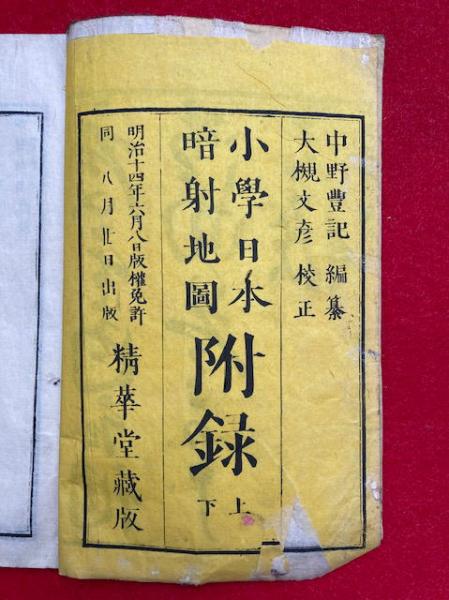 中野豐記 編纂
大槻文彦 校正
小學日本
暗射地圖
附録
上
下
明治十四年六月八日版權免許
同 八月廿日出版
精華堂藏版